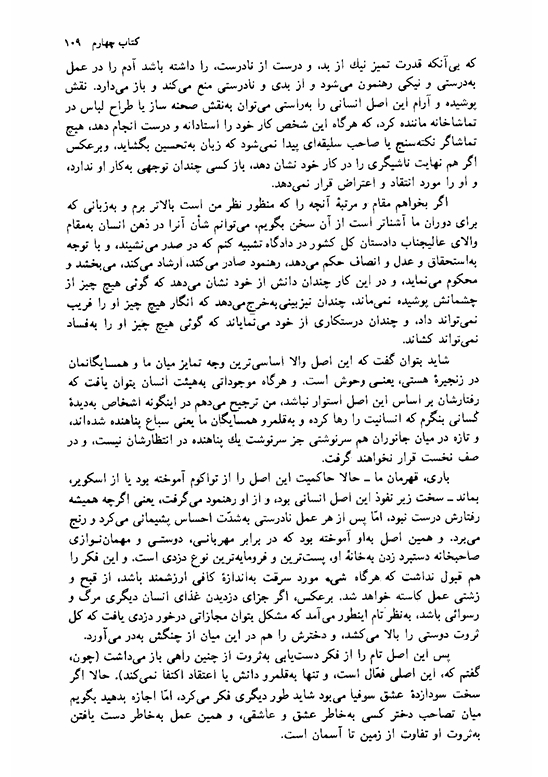 کتاب چهارم ۱۰۹
که بی‌آنکه قدرت تمیز نیك از بد، و درست از نادرست، را داشته باشد آدم را در عمل
به‌درستی و نیکی رهنمون می‌شود و از بدی و نادرستی منع می‌کند و باز می‌دارد. نقش
پوشیده و آرام این اصل انسانی را به‌راستی می‌توان به‌نقش صحنه ساز یا طراح لباس در
تماشاخانه ماننده کرد، که هرگاه این شخص کار خود را استادانه و درست انجام دهد، هیچ
تماشاگر نکته‌سنج یا صاحب سلیقه‌ای پیدا نمی‌شود که زبان به‌تحسین بگشاید، وبرعکس
اگر هم نهایت ناشیگری را در کار خود نشان دهد، باز کسی چندان توجهی به‌کار او ندارد،
و او را مورد انتقاد و اعتراض قرار نمی‌دهد.
اگر بخواهم مقام و مرتبهٔ آنچه را که منظور نظر من است بالاتر برم و به‌زبانی که
برای دوران ما آشناتر است از آن سخن بگویم، می‌توانم شأن آنرا در ذهن انسان به‌مقام
والای عالیجناب دادستان کل کشور در دادگاه تشبیه کنم که در صدر می‌نشیند، و با توجه
به‌استحقاق و عدل و انصاف حکم می‌دهد، رهنمود صادر می‌کند، ارشاد می‌کند، می‌بخشد و
محکوم می‌نماید، و در این کار چندان دانش از خود نشان می‌دهد که گوئی هیچ چیز از
چشمانش پوشیده نمی‌ماند، چندان تیزبینی‌به‌خرج‌می‌دهد که انگار هیچ چیز او را فریب
نمی‌تواند داد، و چندان درستکاری از خود می‌نمایاند که گوئی هیچ چیز او را به‌فساد
نمی‌تواند کشاند.
شاید بتوان گفت که این اصل والا اساسی‌ترین وجه تمایز میان ما و همسایگانمان
در زنجیرهٔ هستی، یعنـی وحوش است. و هرگاه موجوداتی به‌هیئت انسان بتوان یافت که
رفتارشان بر اساس این اصل استوار نباشد، من ترجیح می‌دهم در اینگونه اشخاص به‌دیدهٔ
کَسانی بنگرم که انسانیت را رها کرده و به‌قلمرو همسایگان ما یعنی سباع پناهنده شده‌اند،
و تازه در میان جانوران هم سرنوشتی جز سرنوشت یك پناهنده در انتظارشان نیست، و در
صف نخست قرار نخواهند گرفت.
باری، قهرمان ما ــ حالا حاکمیت این اصل را از تواکوم آموخته بود یا از اسکویر،
بماند ــ سخت زیر نفوذ این اصل انسانی بود، و از او رهنمود می‌گرفت، یعنی اگرچه همیشه
رفتارش درست نبود، امّا پس از هر عمل نادرستی به‌شدّت احساس پشیمانی می‌کرد و رنج
می‌برد. و همین اصل به‌او آموخته بود که در برابر مهربانـی، دوستـی و مهمان‌نـوازی
صاحبخانه دستبرد زدن به‌خانهٔ او، پست‌ترین و فرومایه‌ترین نوع دزدی است. و این فکر را
هم قبول نداشت که هرگاه شیء مورد سرقت به‌اندازهٔ کافی ارزشمند باشد، از قبح و
زشتی عمل کاسته خواهد شد. برعکس، اگر جزای دزدیدن غذای انسان دیگری مرگ و
رسوائی باشد، به‌نظر تام اینطور می‌آمد که مشکل بتوان مجازاتی درخور دزدی یافت که کل
ثروت دوستی را بالا می‌کشد، و دخترش را هم در این میان از چنگش به‌در می‌آورد.
پس این اصل تام را از فکر دست‌یابی به‌ثروت از چنین راهی باز می‌داشت (چون،
گفتم که، این اصلی فعّال است، و تنها به‌قلمرو دانش یا اعتقاد اکتفا نمی‌کند). حالا اگر
سخت سودازدهٔ عشق سوفیا می‌بود شاید طور دیگری فکر می‌کرد، امّا اجازه بدهید بگویم
میان تصاحب دختر کسی به‌خاطر عشق و عاشقی، و همین عمل به‌خاطر دست یافتن
به‌ثروت او تفاوت از زمین تا آسمان است.